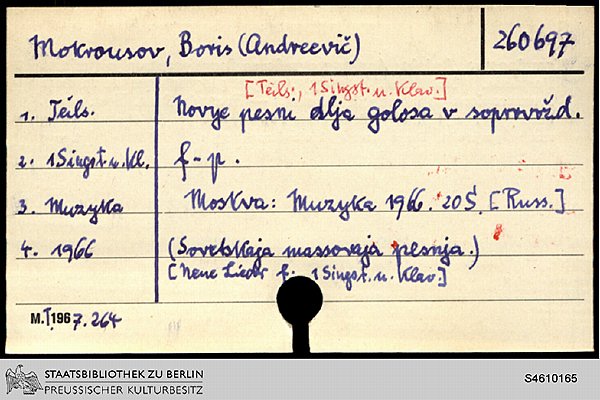 Mokrousov, Boris (Andreevič)
260697
[Teils:, 1 Singst. u. Klav.]
1. Teils. Novye pesni dlja golosa v soprovožd.
2. 1 Singst. u. Kl. f-p.
3. Muzyka Moskva: Muzyka 1966. 20 S. [Russ.]
4. 1966 (Sovetskaja massovaja pesnja.)
[Neue Lieder f. 1 Singst. u. Klav.]
M.T. 1967. 264
STAATSBIBLIOTHEK ZU BERLIN
PREUSSISCHER KULTURBESITZ
S4610165